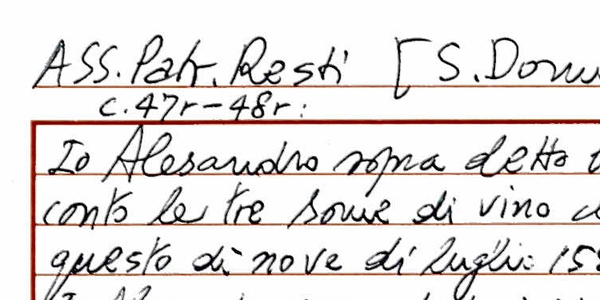 ASS. Patr. Resti [S. Dom
c. 47r - 48r:
Io Alesandro sopra detto
conto le tre some di vino
questo di nove di luglio 15